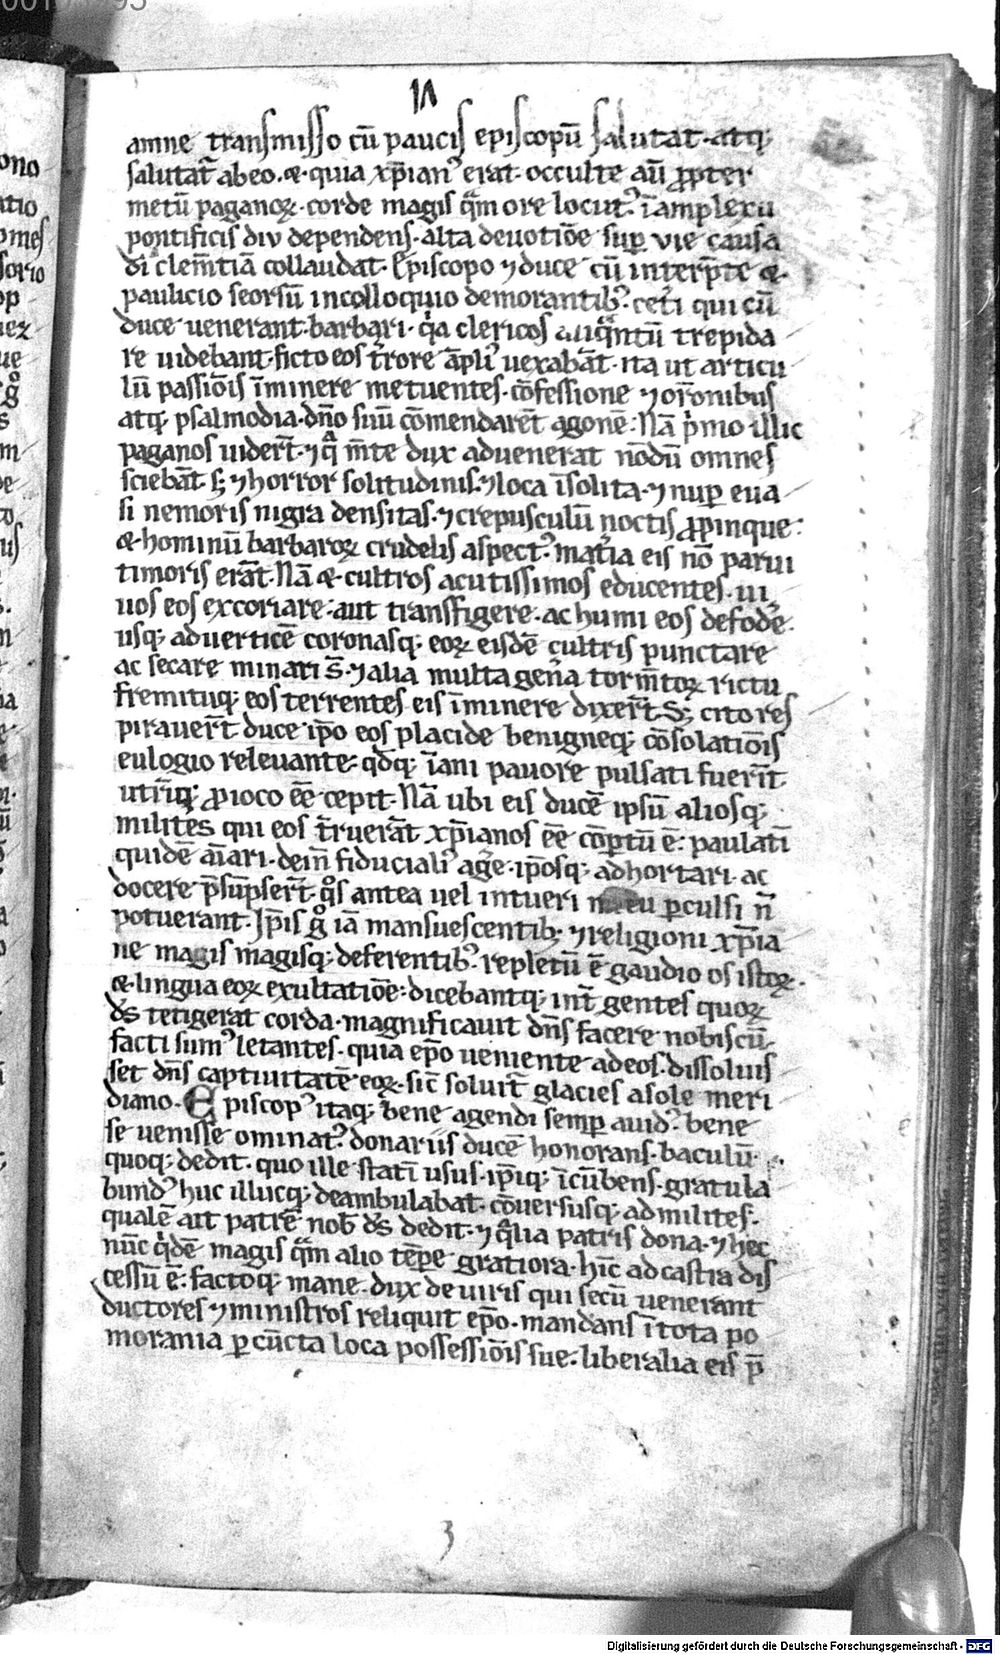 amne transmisso cū paucis episcopū salutat. atq;
salutat᷒ ab eo. & quia xp̄ian᷒ erat. occulte aū ꝓpter
metū paganoꝝ. corde magis q̄m ore locut᷒. ī amplexu
pontificis diu dependens. alta deuotiōe suꝑ vie causa
di clem̄tiā collaudat. Episcopo ⁊ duce cū interp̄te &
paulicio seorsū in colloquio demorantib᷒. cet̄i qui cū
duce uenerant barbari. q̄a clericos aliq̄ntū trepida
re uidebant. ficto eos t̄rore āpli᷒ uexabāt. ita ut articu
lū passiōis īminere metuentes. cōfessione ⁊ or̄onibus
atq; psalmodia. dn̄o suū cōmendarēt agonē. Nā p̄mo illic
paganos uider̄t. ⁊ q̄ m̄te dux aduenerat nōdū omnes
sciebāt. S; ⁊ horror solitudinis. ⁊ loca īsolita. ⁊ nuꝑ eua
si nemoris nigra densitas. ⁊ crepusculū noctis ꝓpinque.
& hominū barbaroꝝ crudelis aspect᷒. mat̄ia eis nō parui
timoris erāt. Nā & cultros acutissimos educentes. ui
uos eos excoriare. aut transfigere. ac humi eos defodē.
usq; ad uerticē coronasq; eoꝝ eisdē cultris punctare
ac secare minati s̄. ⁊ alia multa gen̄a torm̄toꝝ rictu
fremituq; eos terrentes eis īminere dixer̄t. S; cito res
pirauer̄t duce ip̄o eos placide benigneq; cōsolatiōis
eulogio releuante. qd̄q; īani pauore pulsati fuer̄it
utrīq; ꝓ ioco eē cepit. Nā ubi eis ducē ipsū aliosq;
milites qui eos t̄ruerāt xp̄ianos eē cōptū ē. paulatī
quidē aīari. dein̄ fiduciali᷒ age. ip̄osq; adhortari. ac
docere p̄sūpser̄t. q̊s antea uel intueri metu ꝑculsi n̄
potuerant. Ip̄is g̊ iā mansuescentib; ⁊ religioni xp̄ia
ne magis magisq; deferentib᷒. repletū ē gaudio os istoꝝ.
& lingua eoꝝ exultatiōe. dicebantq; int̄ gentes quoꝝ
d̄s tetigerat corda. magnificauit dn̄s facere nobiscū.
facti sum᷒ letantes. quia ep̄o ueniente ad eos. dissoluis
set dn̄s captiuitatē eoꝝ. sic̄ soluit᷒ glacies a sole meri
diano. Episcop᷒ itaq; bene agendi semꝑ auid᷒. bene
se uenisse ominat᷒. donariis ducē honorans. baculū
quoq; dedit. quo ille statī usus. ip̄iq; īcūbens. gratula
bund᷒ huc illucq; deambulabat. cōuersusq; ad milites.
qualē ait patrē nob̄ d̄s dedit. ⁊ q̄lia patris dona. ⁊ hec
nūc q̄dē magis q̄m alio tēpe gratiora. hīc ad castra dis
cessū ē. factoq; mane. dux de uiris qui secū uenerant
ductores ⁊ ministros reliquit ep̄o. mandans ī tota po
morania ꝑ cūcta loca possessiōis sue. liberalia eis p̄
3
Digitalisierung gefördert durch die Deutsche Forschungsgemeinschaft - DFG